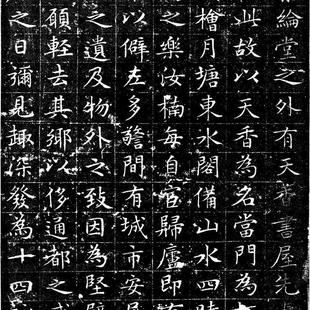 綸堂之外有天香書屋先
此故以天香為名當門為
檜月塘東水閣備山水四時
之樂汝楠每自官歸廬即
以僻左多間有城市安
之遺及物外之致因為堅
願輕去其鄉以侈通都之
之日彌見趣深發為十四